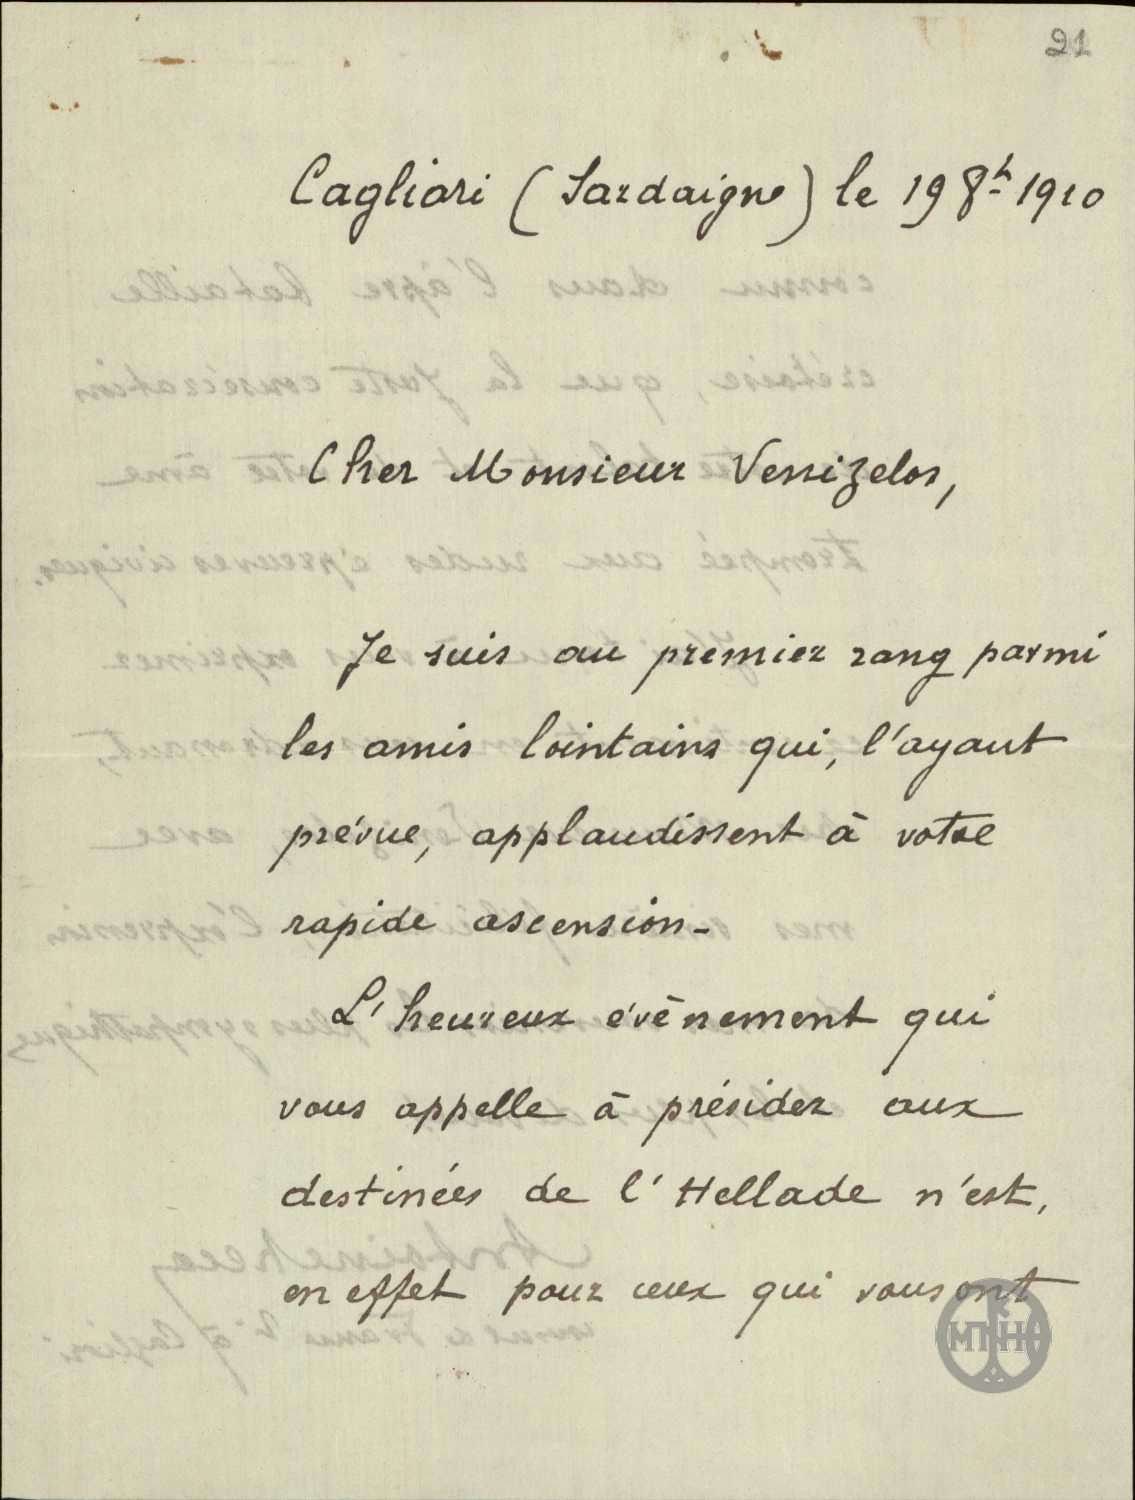 21
Cagliari (Sardaigne) le 19 8bre 1910
Cher Monsieur Venizelos,
Je suis au premier rang parmi
les amis lointains qui, l'ayant
prévue, applaudissent à votre
rapide ascension.
L'heureux évènement qui
vous appelle à présider aux
destinées de l'Hellade n'est,
en effet pour ceux qui vous ont
ΜΠΗΚ